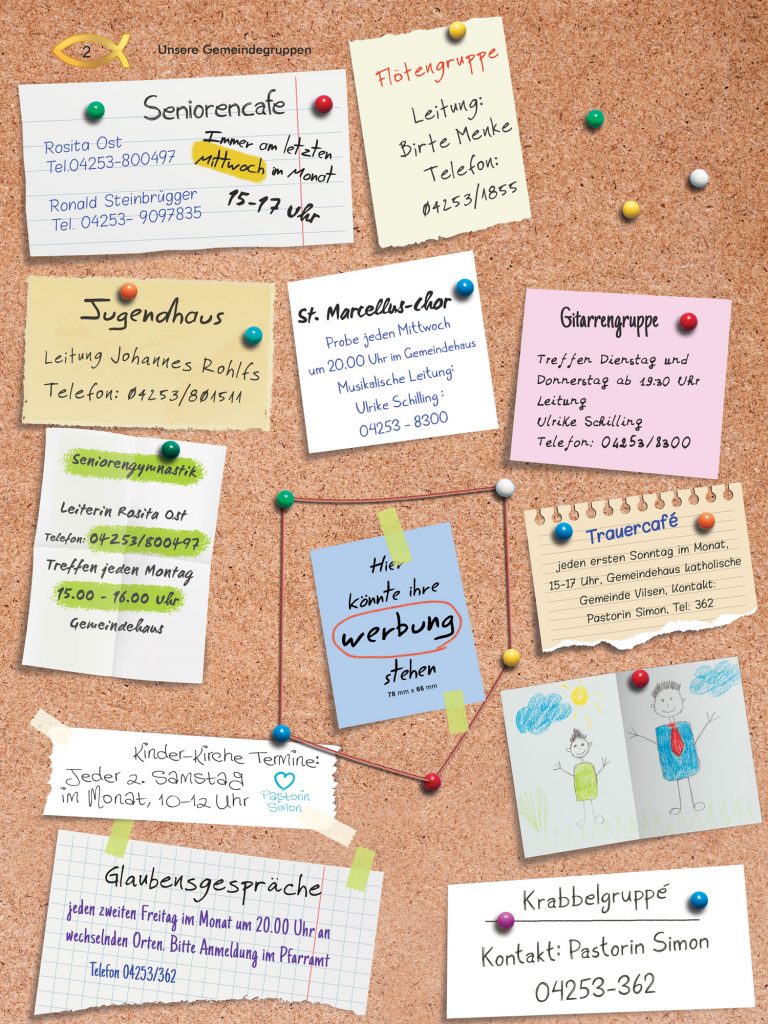 2
Unsere Gemeindegruppen
Seniorencafe
Rosita Ost
Tel.04253-800497
Ronald Steinbrügger
Tel. 04253- 9097835
Immer am letzten
Mittwoch im Monat
15-17 Uhr
Flötengruppe
Leitung:
Birte Menke
Telefon:
04253/1855
Jugendhaus
Leitung Johannes Rohlfs
Telefon: 04253/801511
St. Marcellus-Chor
Probe jeden Mittwoch
um 20.00 Uhr im Gemeindehaus
Musikalische Leitung:
Ulrike Schilling :
04253 - 8300
Gitarrengruppe
Treffen Dienstag und
Donnerstag ab 19:30 Uhr
Leitung
Ulrike Schilling
Telefon: 04253/8300
Seniorengymnastik
Leiterin Rosita Ost
Telefon: 04253/800497
Treffen jeden Montag
15.00 - 16.00 Uhr
Gemeindehaus
Hier
könnte ihre
werbung
stehen
78 mm x 66 mm
Trauercafé
jeden ersten Sonntag im Monat,
15-17 Uhr, Gemeindehaus katholische
Gemeinde Vilsen, Kontakt:
Pastorin Simon, Tel: 362
Kinder-Kirche Termine:
Jeder 2. Samstag
im Monat, 10-12 Uhr
Pastorin
Simon
Glaubensgespräche
jeden zweiten Freitag im Monat um 20.00 Uhr an
wechselnden Orten. Bitte Anmeldung im Pfarramt
Telefon 04253/362
Krabbelgruppé
Kontakt: Pastorin Simon
04253-362